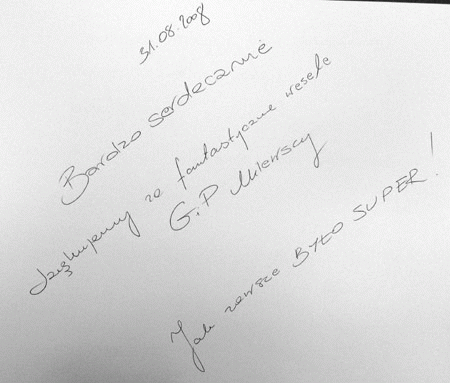 31.08.2008
Bardzo serdecznie
dziękujemy za fantastyczne wesele
G.P Milewscy
Jak zawsze BYŁO SUPER!